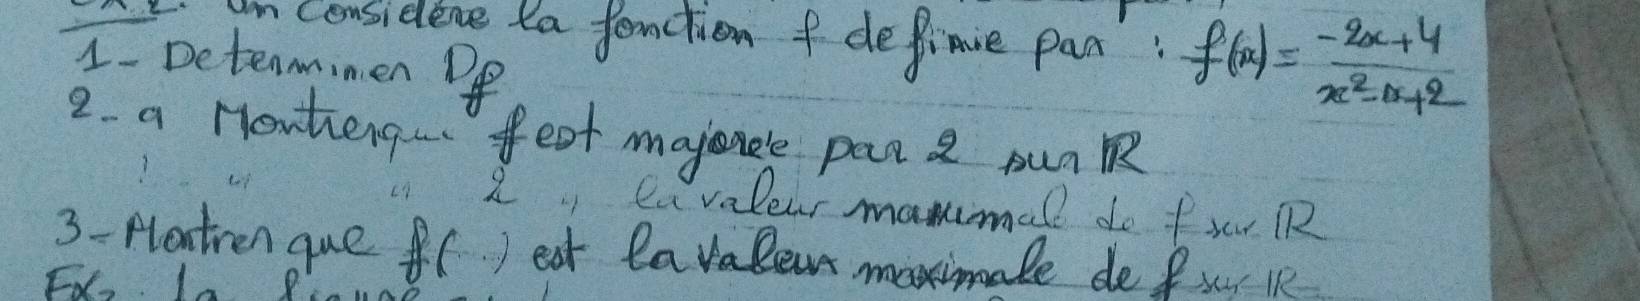 Ex 2. On considère la fonction f definie par : f(x) = -2x+4 / x²-x+2
1- Determiner Df
2- a Montrerque f est majorée par 2 sur R
" " 2 " la valeur maximal de f sur R
3- Montrer que f( ) est la valeur maximale de f sur R
Ex